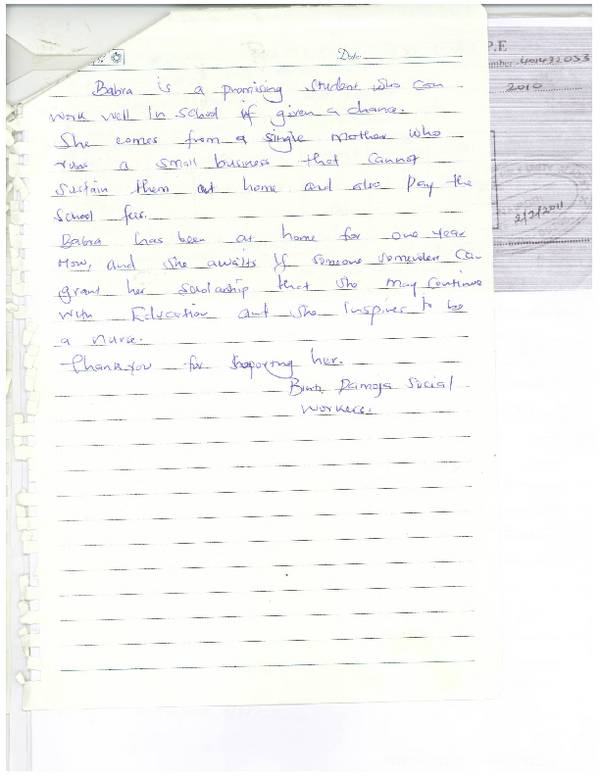 Date
P.E
2010
2/2/2011
Babra is a promising student who can
work well in school if given a chance.
She comes from a single mother who
runs a small business that cannot
sustain them at home and also pay the
school fees.
Babra has been at home for one year
now, and she awaits if someone somewhere can
grant her scholarship that she may continue
with Education and she inspires to be
a nurse.
Thank you for supporting her.
Damoja Social
Workers.